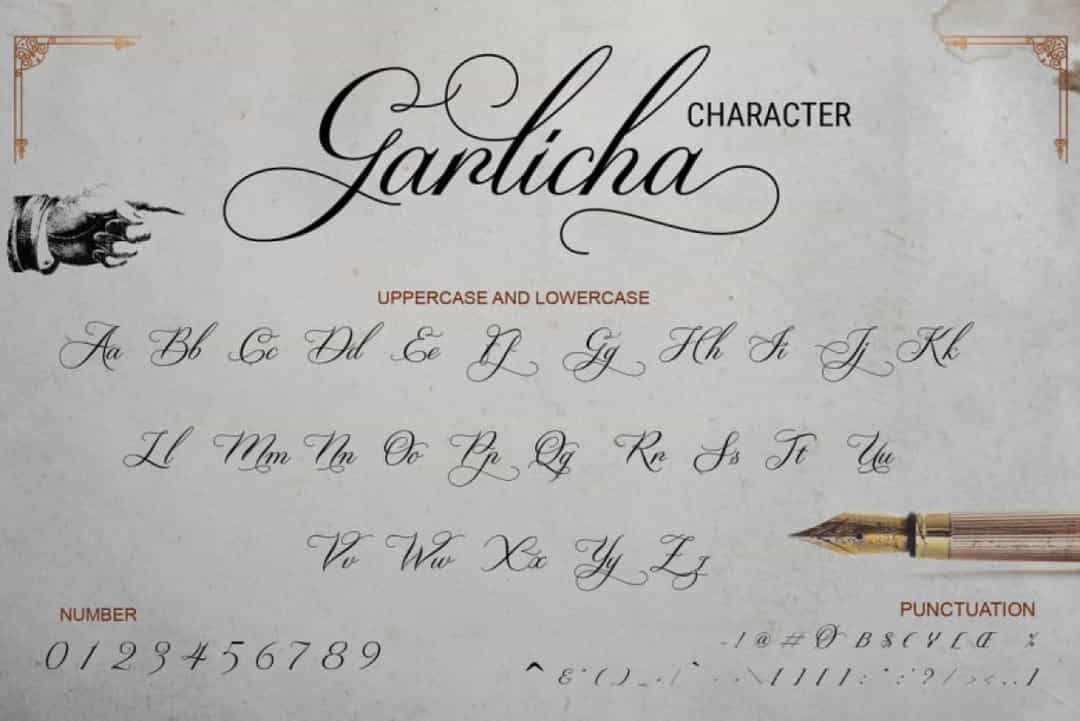 Garlicha CHARACTER
UPPERCASE AND LOWERCASE
Aa Bb Cc Dd Ee Ff Gg Hh Ii Jj Kk
Ll Mm Nn Oo Pp Qq Rr Ss Tt Uu
Vv Ww Xx Yy Zz
NUMBER
0 1 2 3 4 5 6 7 8 9
PUNCTUATION